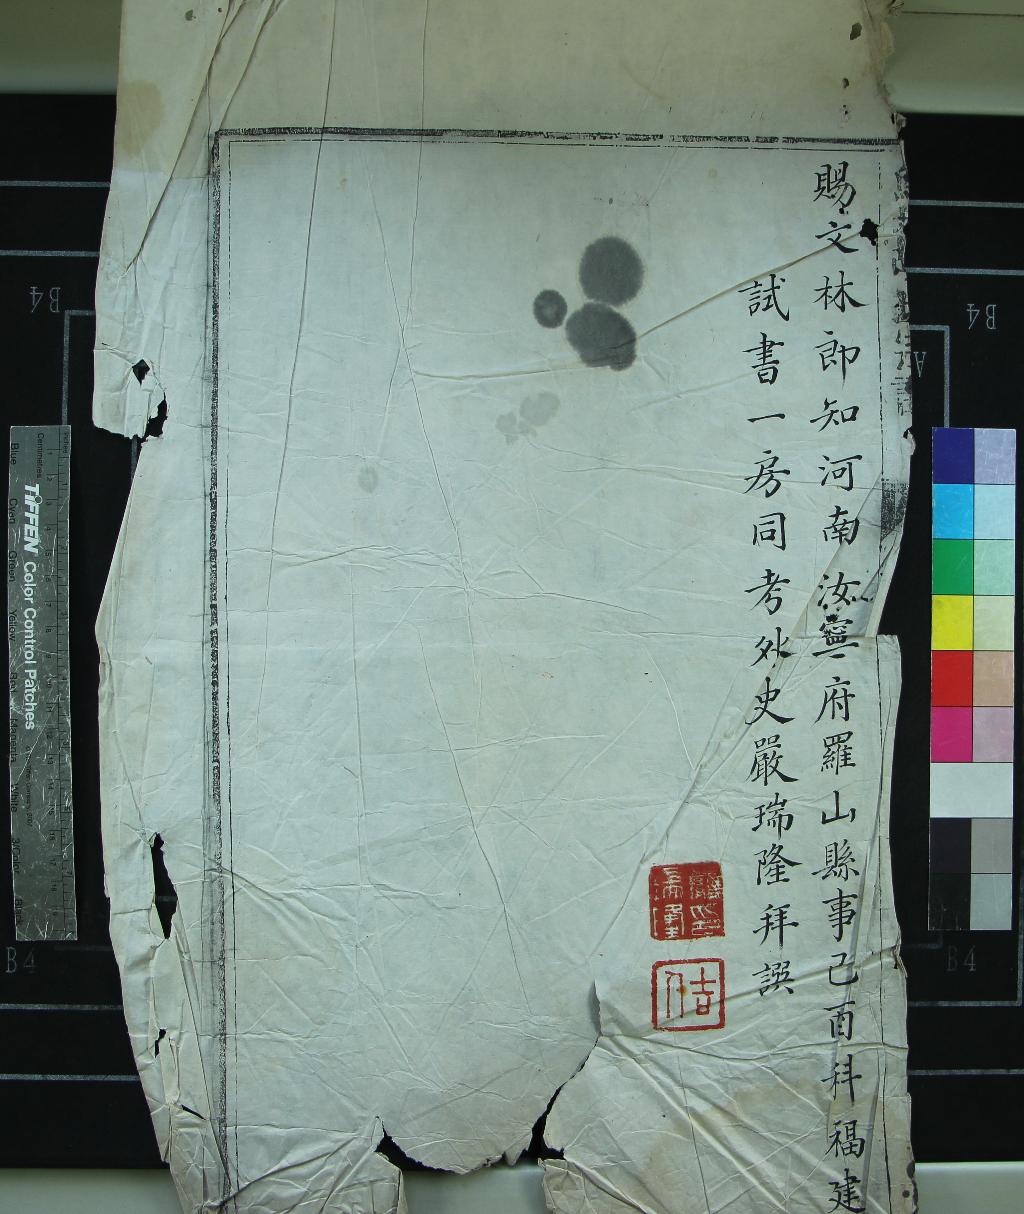 賜文林郎知河南汝寧府羅山縣事己酉科福建
試書一房同考外史嚴瑞隆拜譔
B4
B4
B4
B4
TIFFEN Color Control Patches
Centimetres
Inches
Blue
Cyan
Green
Yellow
Red
Magenta
White
3/Color
Black